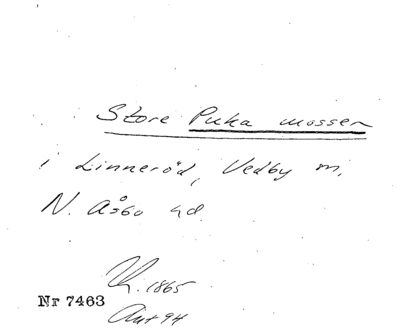 Store Puka mossen
i Linneröd, Vedby m.
N. Åsbo hd.
1865
Nr 7463
Avt 94